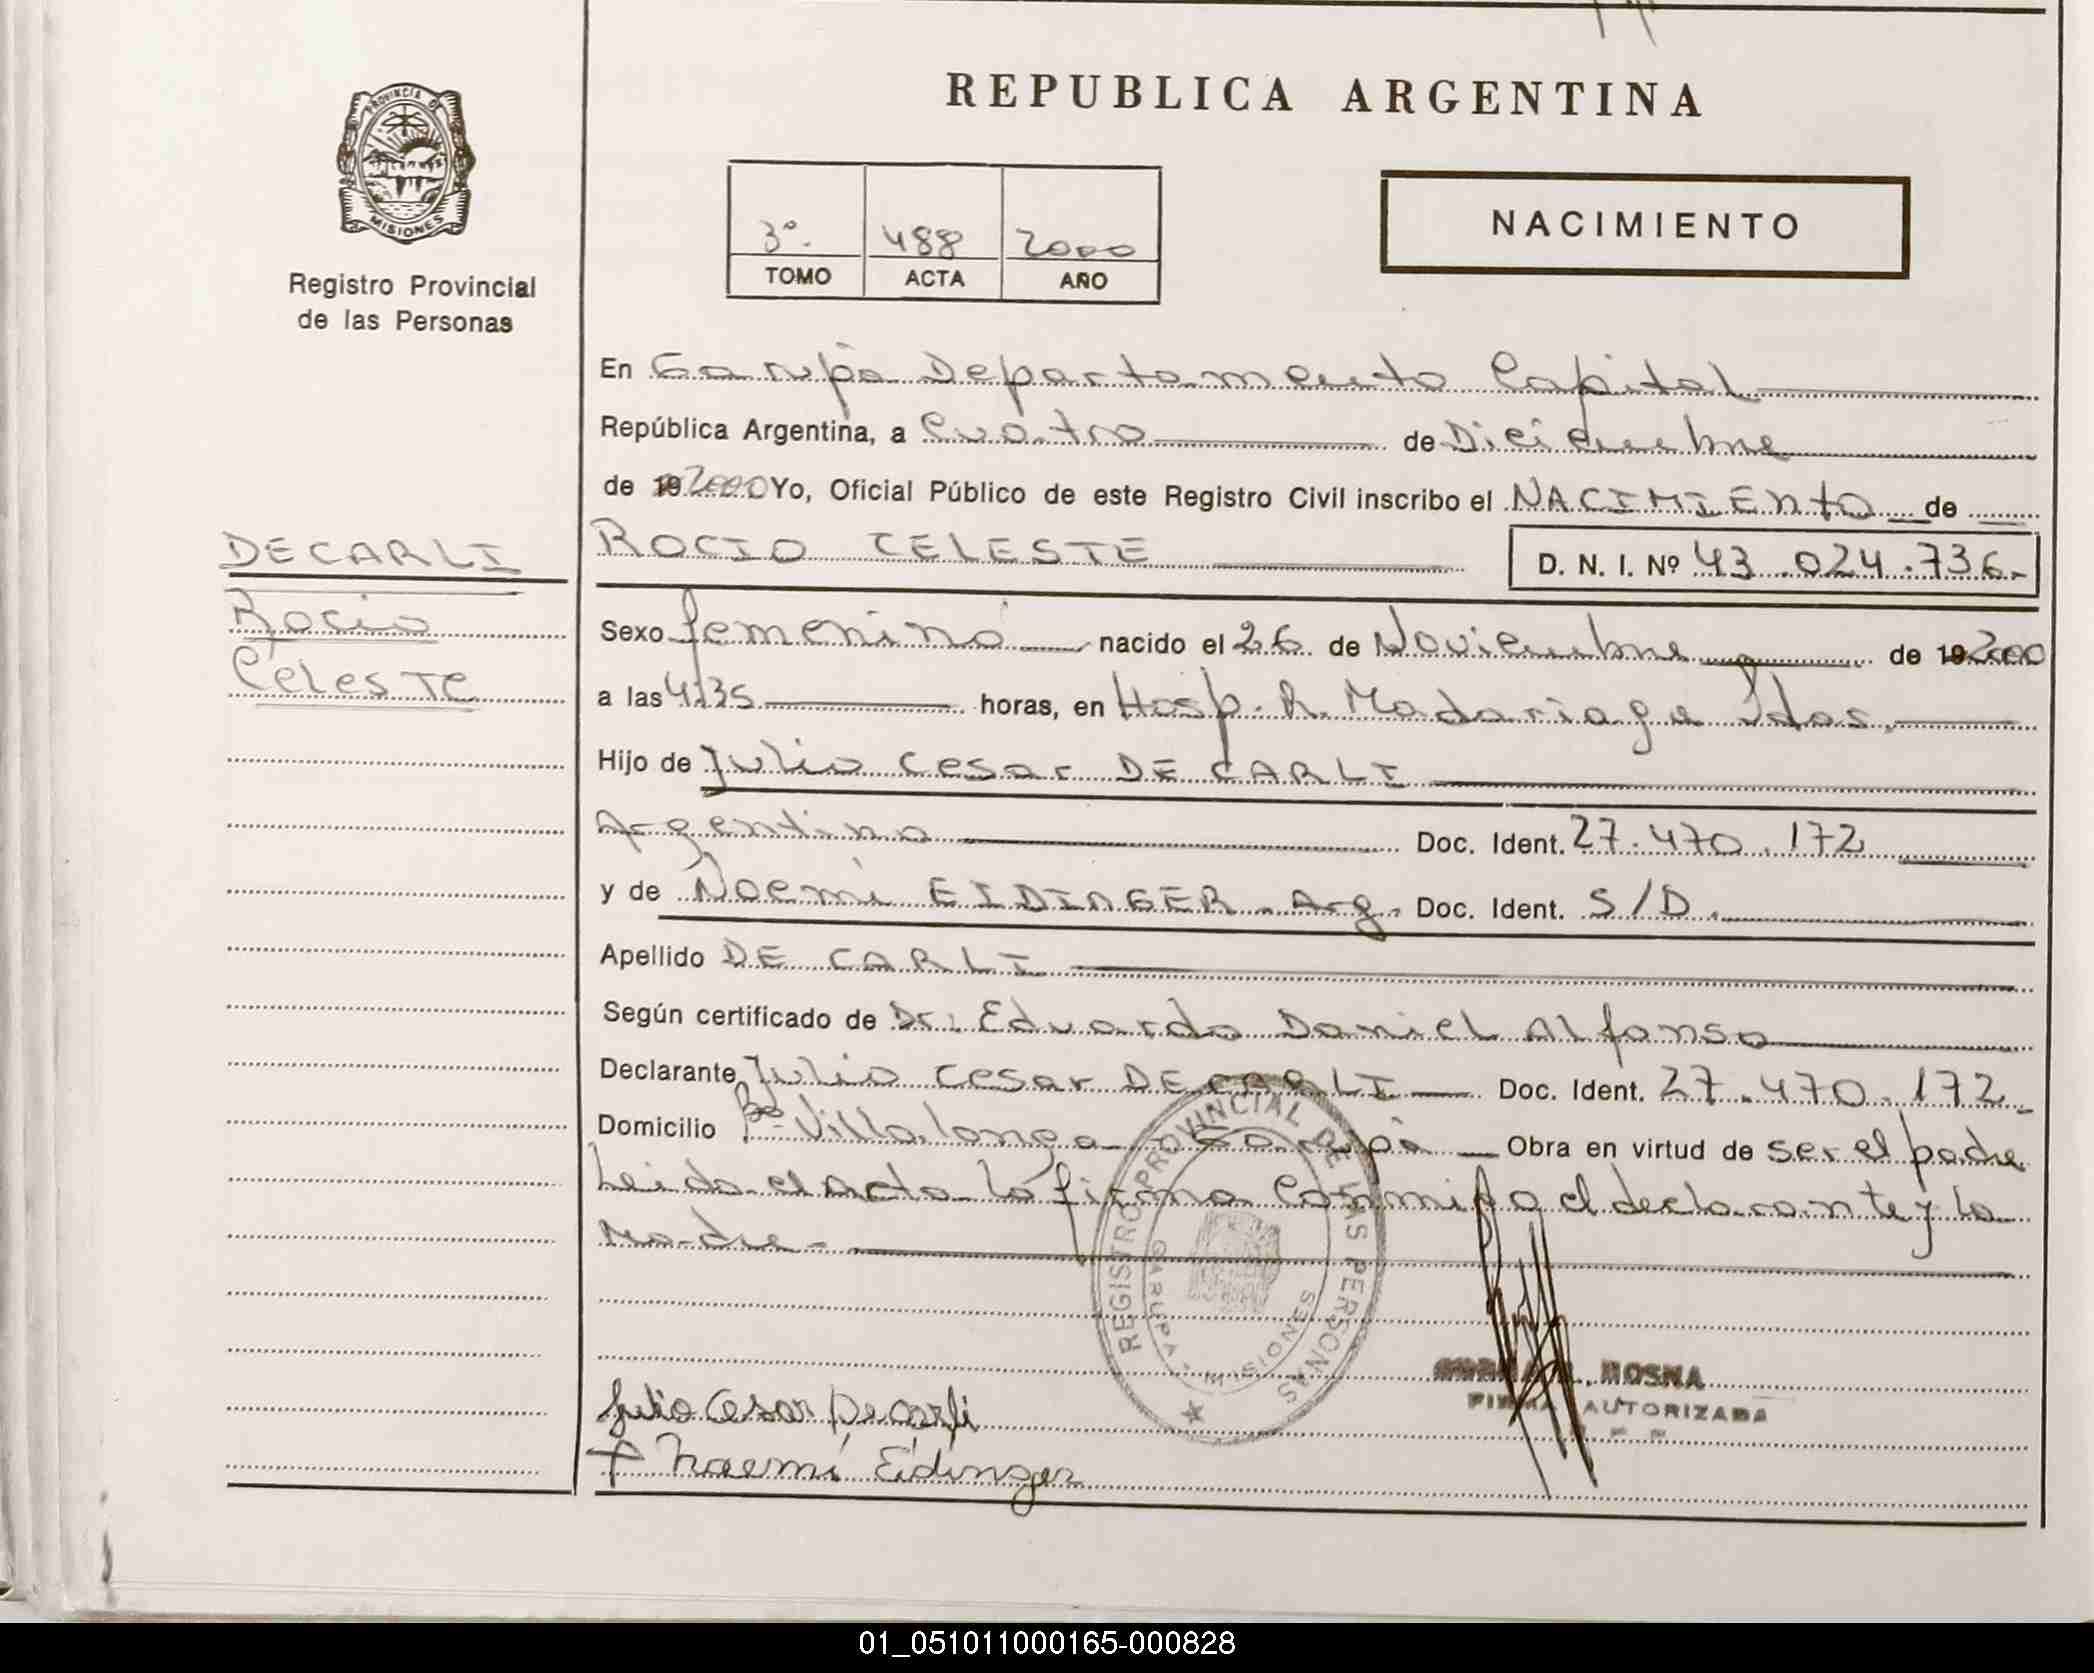 PROVINCIA DE
MISIONES
Registro Provincial
de las Personas
REPUBLICA ARGENTINA
3º. 488 2000
TOMO ACTA AÑO
NACIMIENTO
En Garupá Departamento Capital
República Argentina, a Cuatro de Diciembre
de 19 2000 Yo, Oficial Público de este Registro Civil inscribo el NACIMIENTO de
DECARLI
Rocio
Celeste
ROCIO CELESTE D. N. I. Nº 43.024.736.-
Sexo femenino nacido el 26 de Noviembre de 19 2000
a las 4,35 horas, en Hosp. R. Madariaga Pdas.
Hijo de Julio Cesar DE CARLI
Argentino Doc. Ident. 27.470.172
y de Noemi EIDINGER - Arg. Doc. Ident. S/D.
Apellido DE CARLI
Según certificado de Dr: Eduardo Daniel Alfonso
Declarante Julio Cesar DE CARLI Doc. Ident. 27.470.172-
Domicilio Bº Villalonga - Garupá Obra en virtud de ser el padre
Leida el acta la firma conmigo el declarante y la
Madre-
REGISTRO PROVINCIAL DE LAS PERSONAS
GARUPA - MISIONES
MOSNA
FIRMA AUTORIZADA
Julio Cesar De carli
Naemí Eidinger
01_051011000165-000828